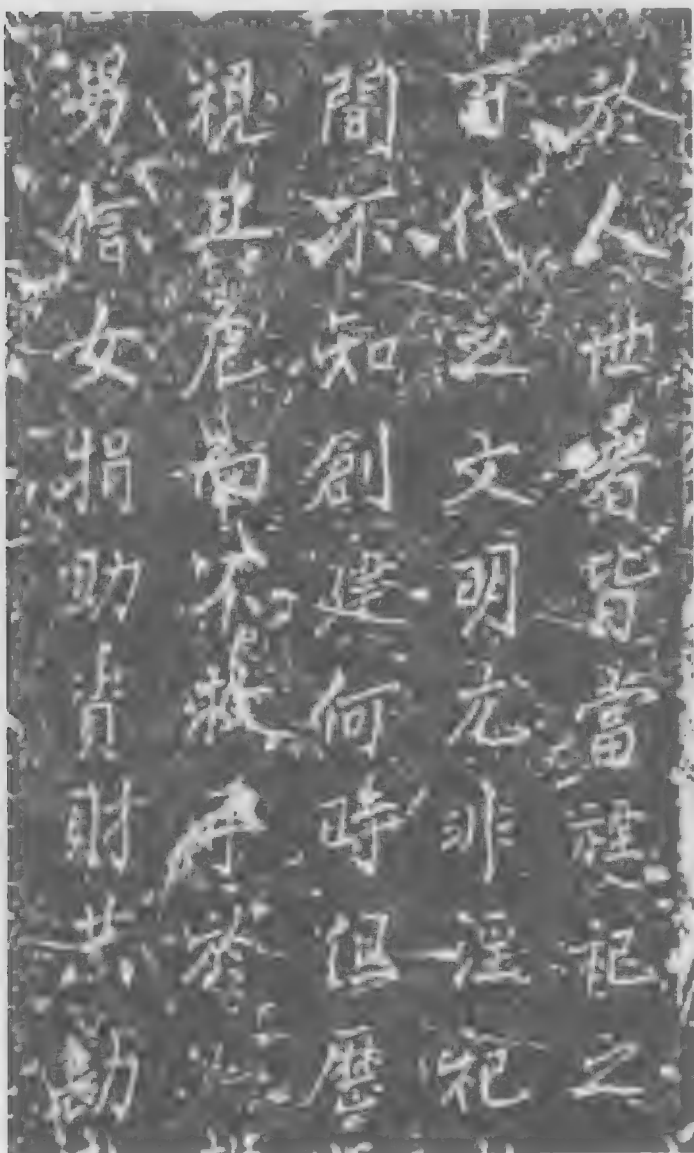 於人世者皆當禋祀之
百代之文明尤非淫祀
間不知創建何時但歷
視其不於
男信女捐助貲財共勷